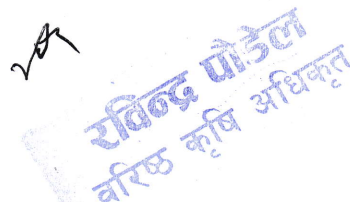 रविन्द्र पौडेल
वरिष्ठ कृषि अधिकृत